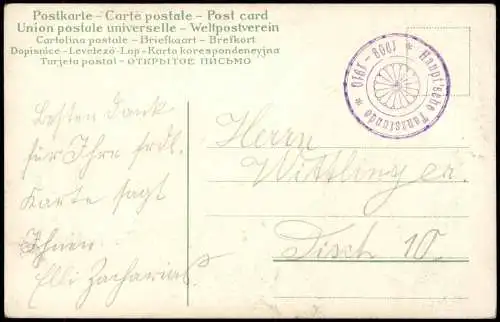 Postkarte – Carte postale – Post card
Union postale universelle – Weltpostverein
Cartolina postale – Briefkaart – Brefkort
Dopisnice – Levelező-Lap – Karta korespondencyjna
Tarjeta postal – ОТКРЫТОЕ ПИСЬМО
Haupt'sche Tanzstunde * 1909 – 1910 *
Besten Dank
für Ihre frdl.
Karte sagt
Ihnen
Elli Zacharias.
Herrn
Wittlinger.
Tisch 10.